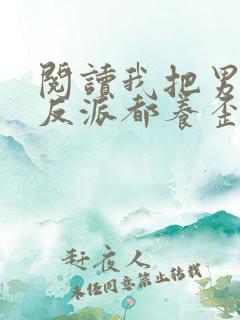 閱讀我把男
反派都養歪
赶夜人
未经同意禁止转载